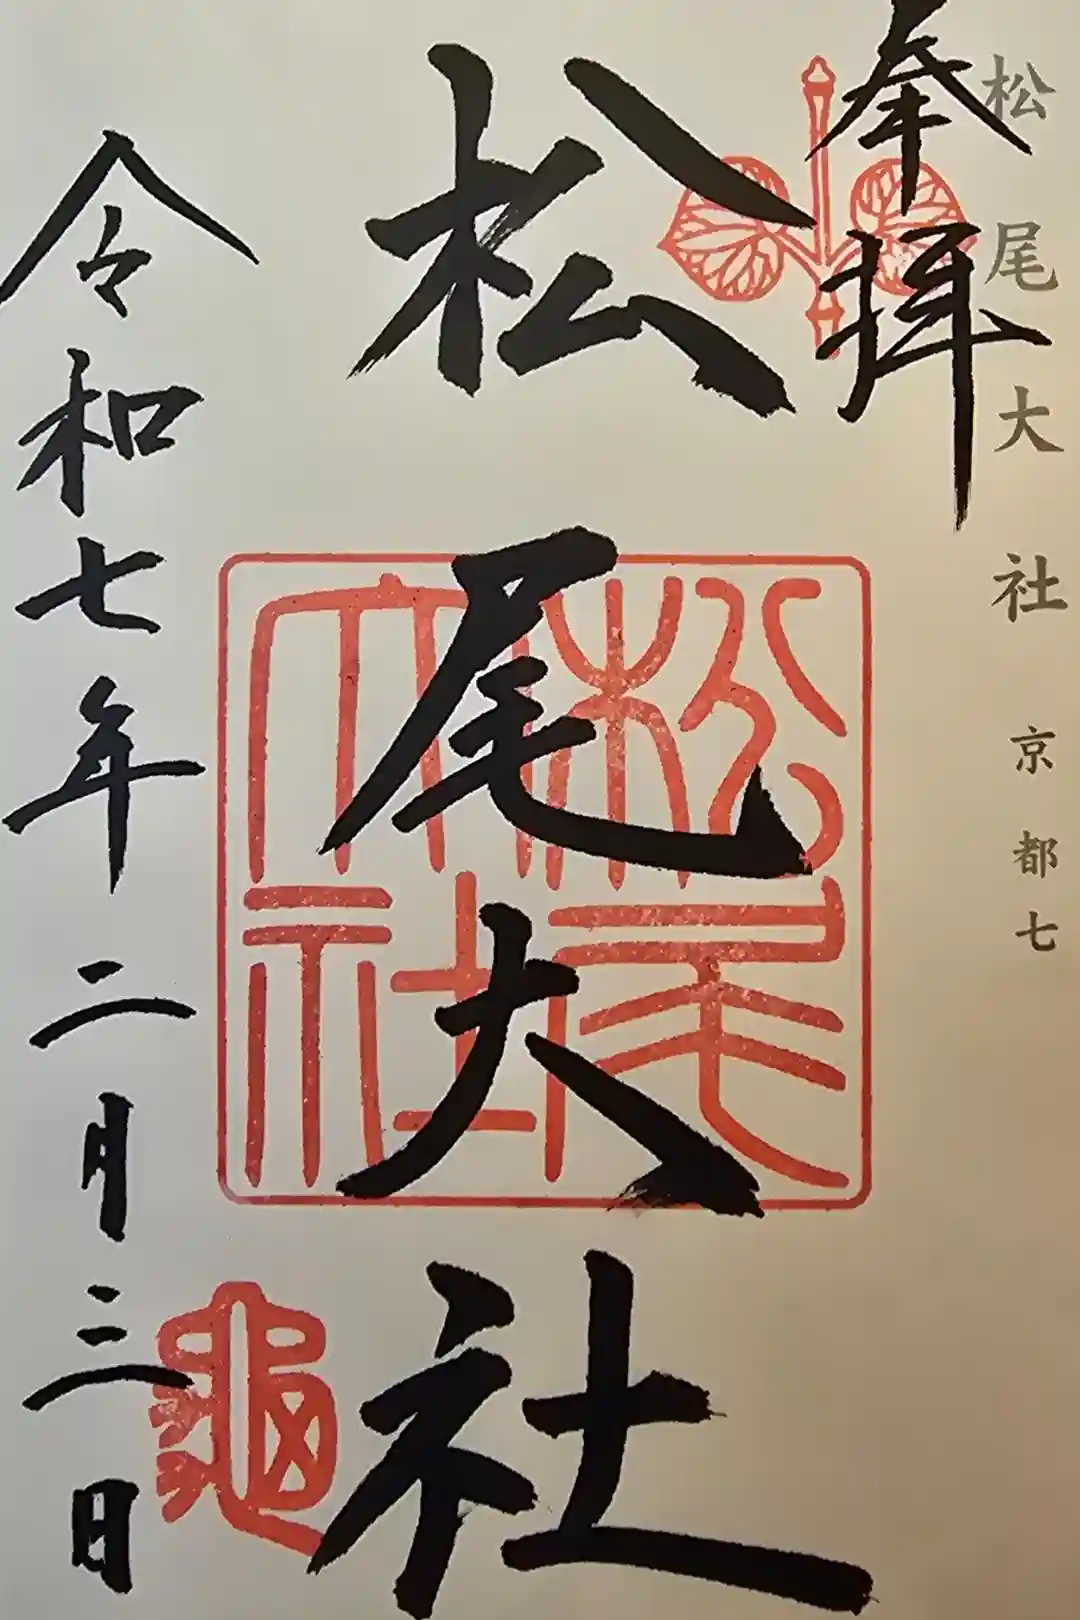 松尾大社 京都七
奉拝
松尾大社
令和七年二月三日
松尾
大社
龜